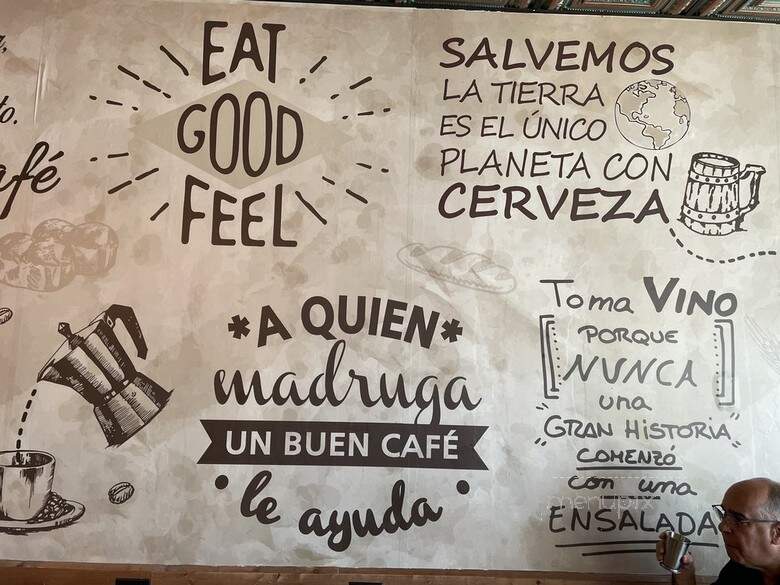 to.
afé
EAT
GOOD
FEEL
SALVEMOS
LA TIERRA
ES EL ÚNICO
PLANETA CON
CERVEZA
*A QUIEN*
madruga
UN BUEN CAFÉ
• le ayuda •
Toma VINO
[PORQUE
NUNCA]
una
"GRAN HISTORIA"
COMENZÓ
con una
ENSALADA
menupix